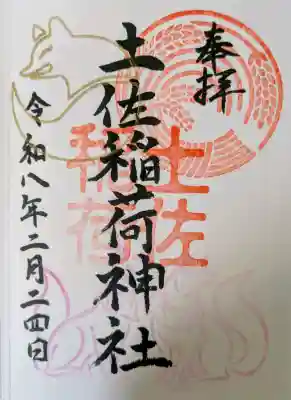 奉拝
土佐稲荷神社
令和八年二月二四日
土佐
稲荷